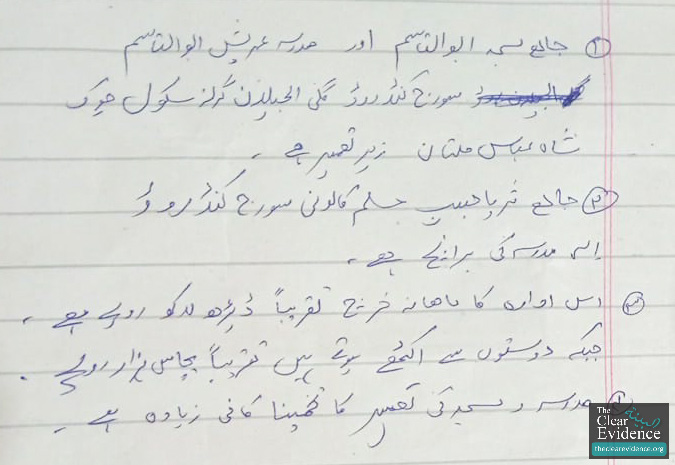 ① جامع مسجد ابوالقاسم اور مدرسہ عریش ابوالقاسم
سورج کنڈ روڈ گلی الجیلان گرلز سکول چوک
شاہ عباس ملتان زیر تعمیر ہے ۔
② جامع ثریا حبیب مسلم کالونی سورج کنڈ روڈ
اس مدرسہ کی برانچ ہے ۔
③ اس ادارہ کا ماہانہ خرچ تقریباً ڈیڑھ لاکھ روپے ہے ۔
جبکہ دوستوں سے اکٹھے ہوتے ہیں تقریباً پچاس ہزار روپے ۔
مدرسہ و مسجد کی تعمیر کا تخمینا کافی زیادہ ہے ۔
The البينة
Clear
Evidence
theclearevidence.org